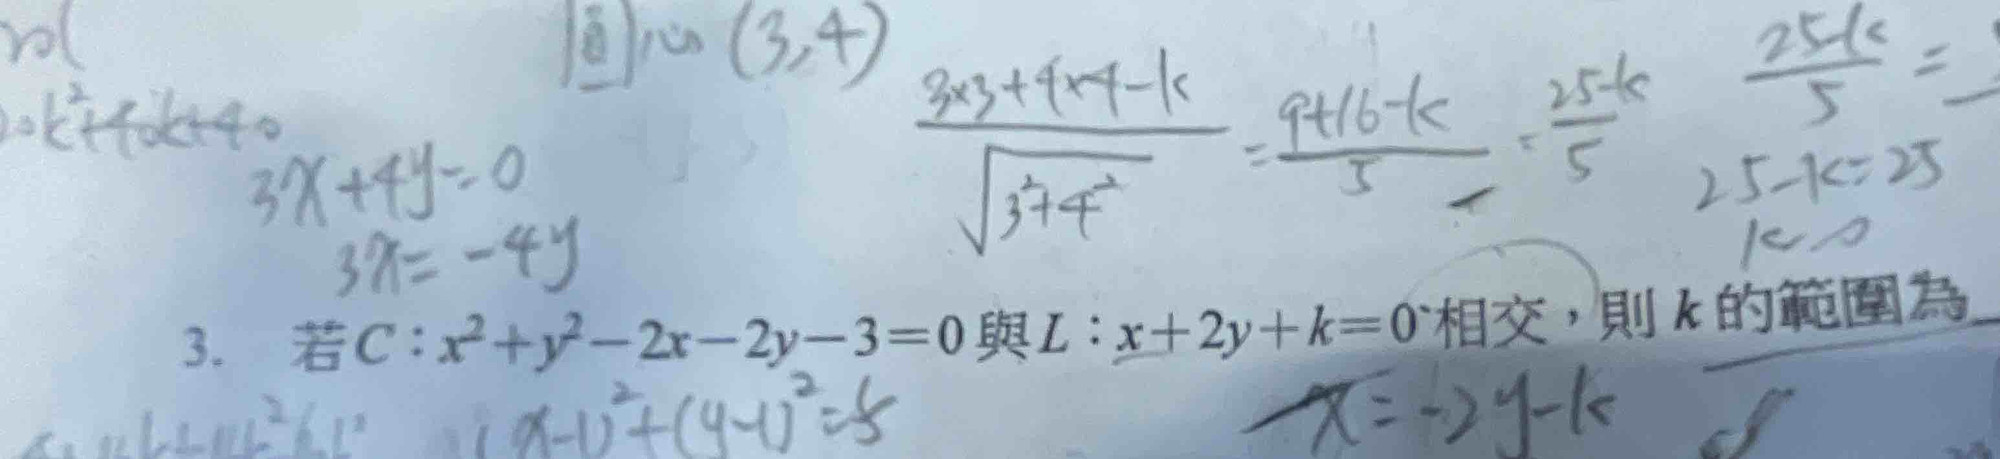 圓心 (3,4)
k²+40k+40
3x+4y=0
3x=-4y
3×3+4×4-k / √3²+4² = 9+16-k / 5 = 25-k / 5
25-k / 5 =
25-k=25
k=0
3. 若C:x²+y²-2x-2y-3=0與L:x+2y+k=0相交,則k的範圍為
(x-1)²+(y-1)²=5
x=-2y-k